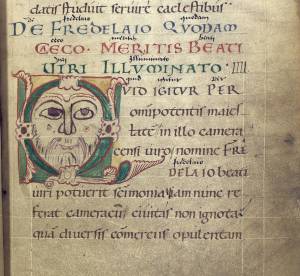 datis studuit seruire caelestibus
fredelaio quodam
DE FREDELAIO QUODAM
ceco
CECO · MERITIS BEATI
illuminato
UIRI ILLUMINATO · IIII
QUID IGITUR PER
omnipotentis maies
tate in illo camera
censi uiro nomine FRE
fredelaio
DELAIO beati
uiri potuerit scimonia iam nunc re
ferat cameracus ciuitas non ignota
qua diuersis comerciis opulentam